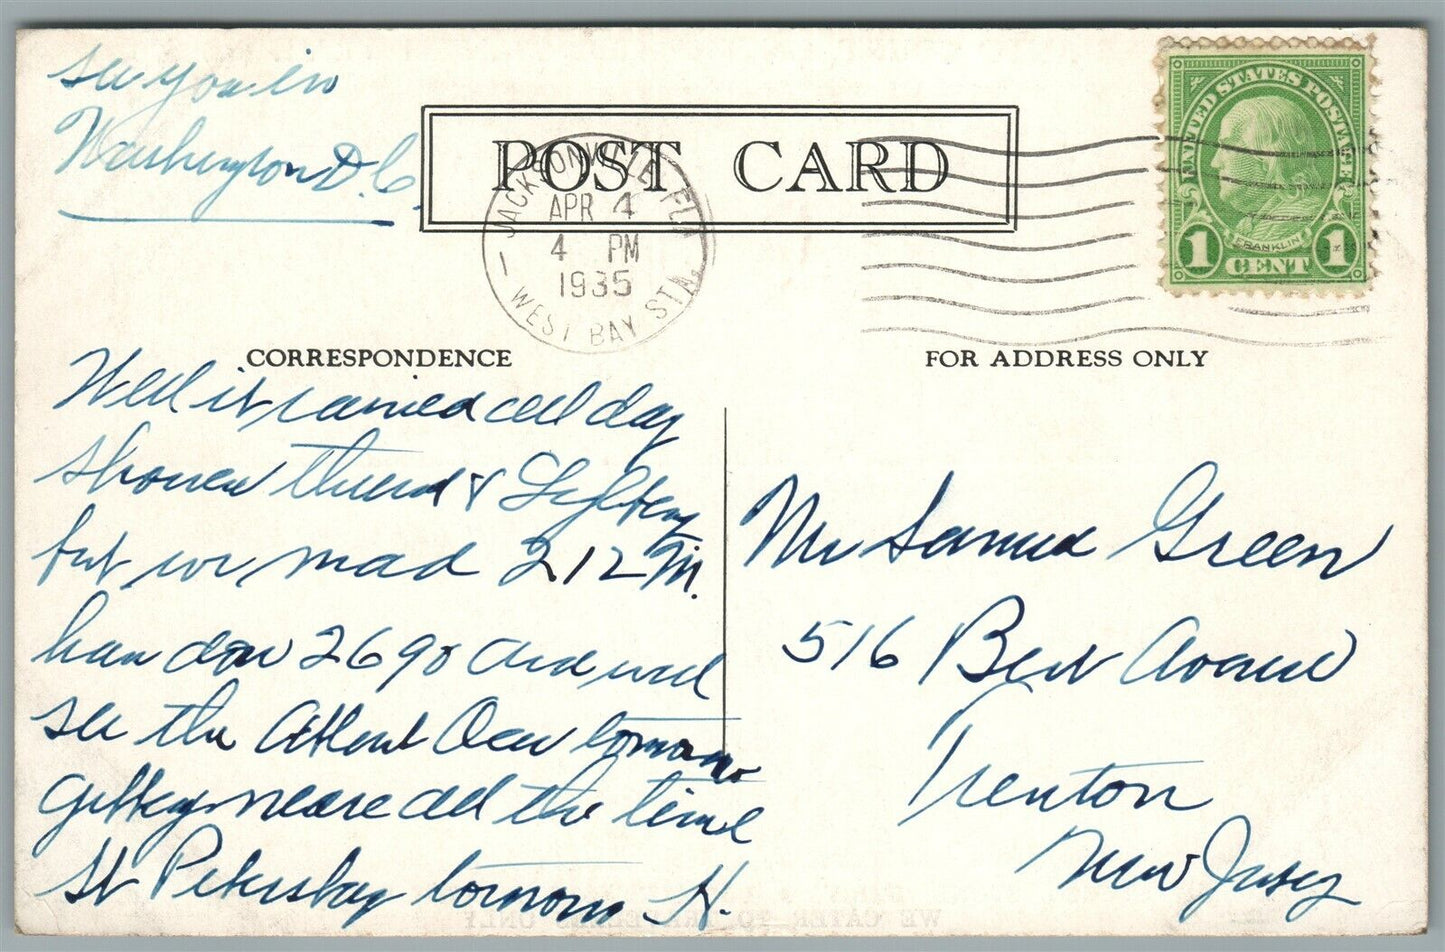 see you in
Washington D.C.
POST CARD
JACKSONVILLE, FLA.
APR 4
4 PM
1935
WEST BAY STA.
UNITED STATES POSTAGE
FRANKLIN
1 CENT 1
CORRESPONDENCE
FOR ADDRESS ONLY
Well it rained all day
shower & 
but we mad 212 M.
2690 and will
see the Atlant Ocean
all the time
St Petersbg H.
Mr Samuel Green
516 Avenue
Trenton
New Jersey
WE CATER TO ONLY